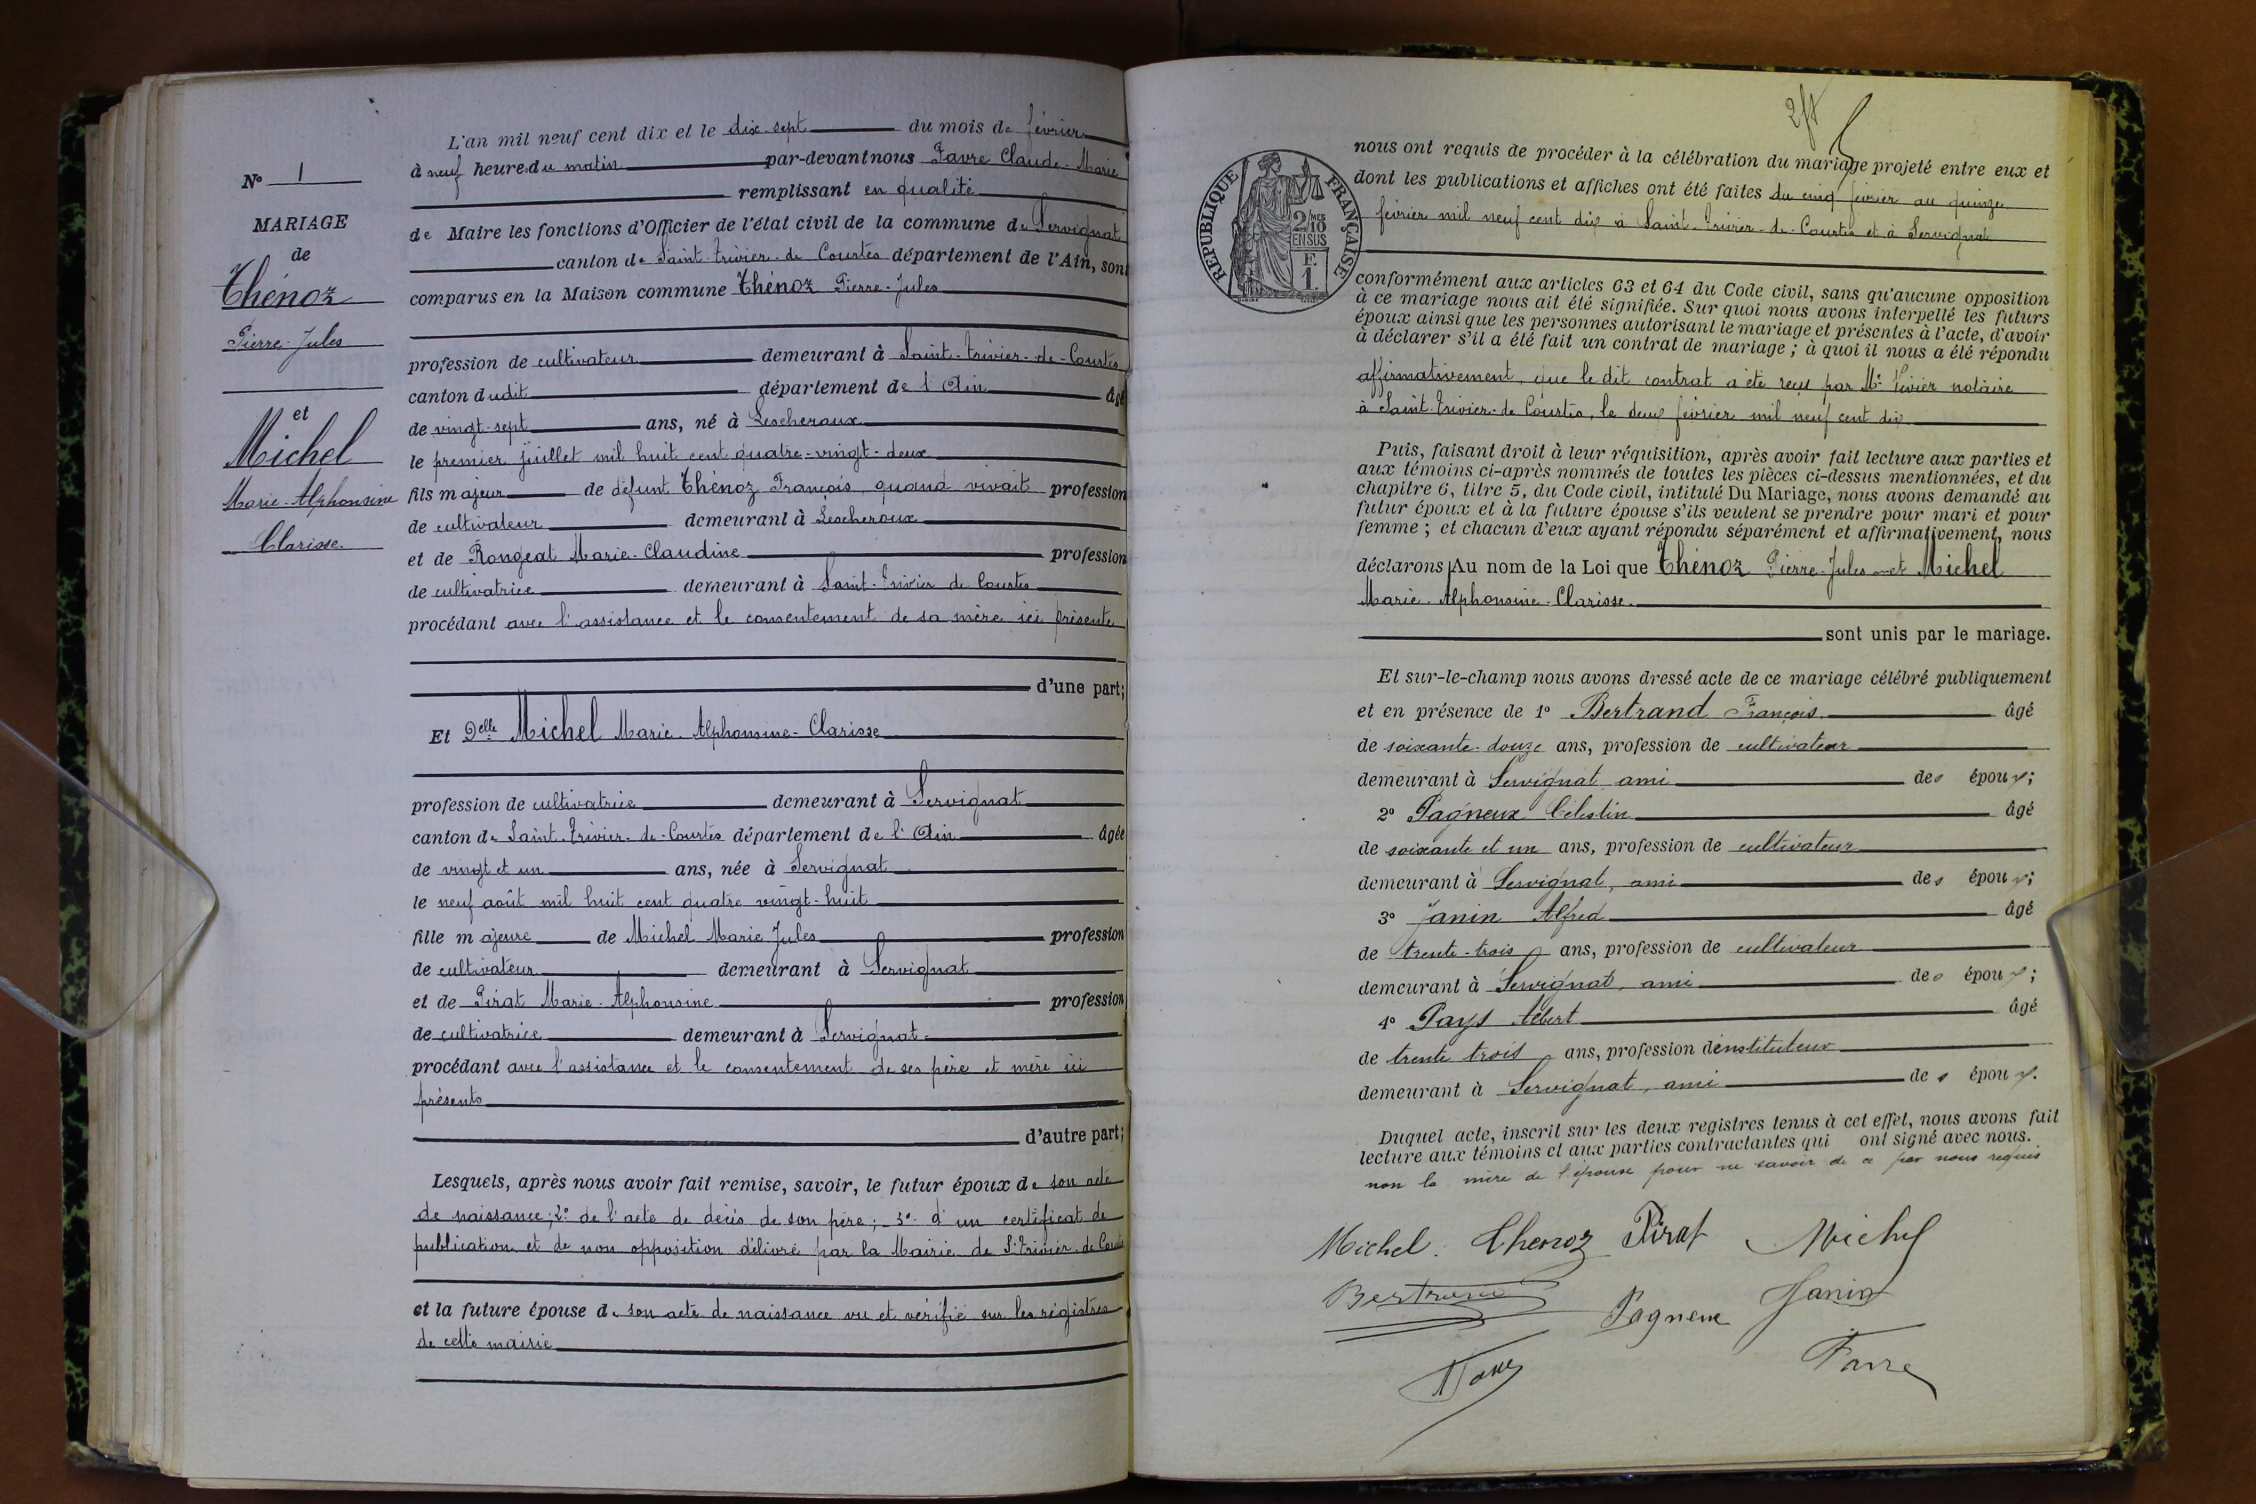 L'an mil neuf cent dix et le dix-sept du mois de février
N° 1
à neuf heures du matin par-devant nous Favre Claude-Marie
remplissant en qualité
MARIAGE
de Maire les fonctions d'Officier de l'état civil de la commune de Servignat
de
canton de Saint-Trivier-de-Courtes département de l'Ain, sont
Thénoz
comparus en la Maison commune Thénoz Pierre-Jules
Pierre-Jules
profession de cultivateur demeurant à Saint-Trivier-de-Courtes
canton dudit département de l'Ain âgé
et
de vingt-sept ans, né à Lescheroux
Michel
le premier juillet mil huit cent quatre-vingt-deux
Marie-Alphonsine
fils majeur de défunt Thénoz François, quand vivait profession
de cultivateur demeurant à Lescheroux
Clarisse.
et de Rongeat Marie-Claudine profession
de cultivatrice demeurant à Saint-Trivier de Courtes
procédant avec l'assistance et le consentement de sa mère ici présente
d'une part;
Et Delle Michel Marie-Alphonsine-Clarisse
profession de cultivatrice demeurant à Servignat
canton de Saint-Trivier-de-Courtes département de l'Ain âgée
de vingt et un ans, née à Servignat
le neuf août mil huit cent quatre vingt-huit
fille majeure de Michel Marie Jules profession
de cultivateur demeurant à Servignat
et de Pirat Marie-Alphonsine profession
de cultivatrice demeurant à Servignat
procédant avec l'assistance et le consentement de ses père et mère ici
présents
d'autre part;
Lesquels, après nous avoir fait remise, savoir, le futur époux de son acte
de naissance; 2° de l'acte de décès de son père; 3° d'un certificat de
publication et de non opposition délivré par la Mairie de St-Trivier-de-Courtes
et la future épouse de son acte de naissance vu et vérifié sur les registres
de cette mairie
2ft
nous ont requis de procéder à la célébration du mariage projeté entre eux et
dont les publications et affiches ont été faites du cinq février au quinze
février mil neuf cent dix à Saint-Trivier-de-Courtes et à Servignat
REPUBLIQUE FRANÇAISE
2/10 MES
EN SUS
F.
1.
conformément aux articles 63 et 64 du Code civil, sans qu'aucune opposition
à ce mariage nous ait été signifiée. Sur quoi nous avons interpellé les futurs
époux ainsi que les personnes autorisant le mariage et présentes à l'acte, d'avoir
à déclarer s'il a été fait un contrat de mariage; à quoi il nous a été répondu
affirmativement, que le dit contrat a été reçu par Me Vivier notaire
à Saint-Trivier-de Courtes, le deux février mil neuf cent dix
Puis, faisant droit à leur réquisition, après avoir fait lecture aux parties et
aux témoins ci-après nommés de toutes les pièces ci-dessus mentionnées, et du
chapitre 6, titre 5, du Code civil, intitulé Du Mariage, nous avons demandé au
futur époux et à la future épouse s'ils veulent se prendre pour mari et pour
femme; et chacun d'eux ayant répondu séparément et affirmativement, nous
déclarons Au nom de la Loi que Thénoz Pierre-Jules et Michel
Marie-Alphonsine-Clarisse.
sont unis par le mariage.
Et sur-le-champ nous avons dressé acte de ce mariage célébré publiquement
et en présence de 1° Bertrand François âgé
de soixante-douze ans, profession de cultivateur
demeurant à Servignat ami des époux;
2° Pagneux Célestin âgé
de soixante et un ans, profession de cultivateur
demeurant à Servignat, ami des époux;
3° Janin Alfred âgé
de trente-trois ans, profession de cultivateur
demeurant à Servignat, ami des époux;
4° Pays Albert âgé
de trente trois ans, profession d'instituteur
demeurant à Servignat, ami des époux.
Duquel acte, inscrit sur les deux registres tenus à cet effet, nous avons fait
lecture aux témoins et aux parties contractantes qui ont signé avec nous.
non la mère de l'épouse pour ne savoir de ce par nous requis
Michel. Thenoz Pirat Michel
Bertrand Pagneux Janin
Favre